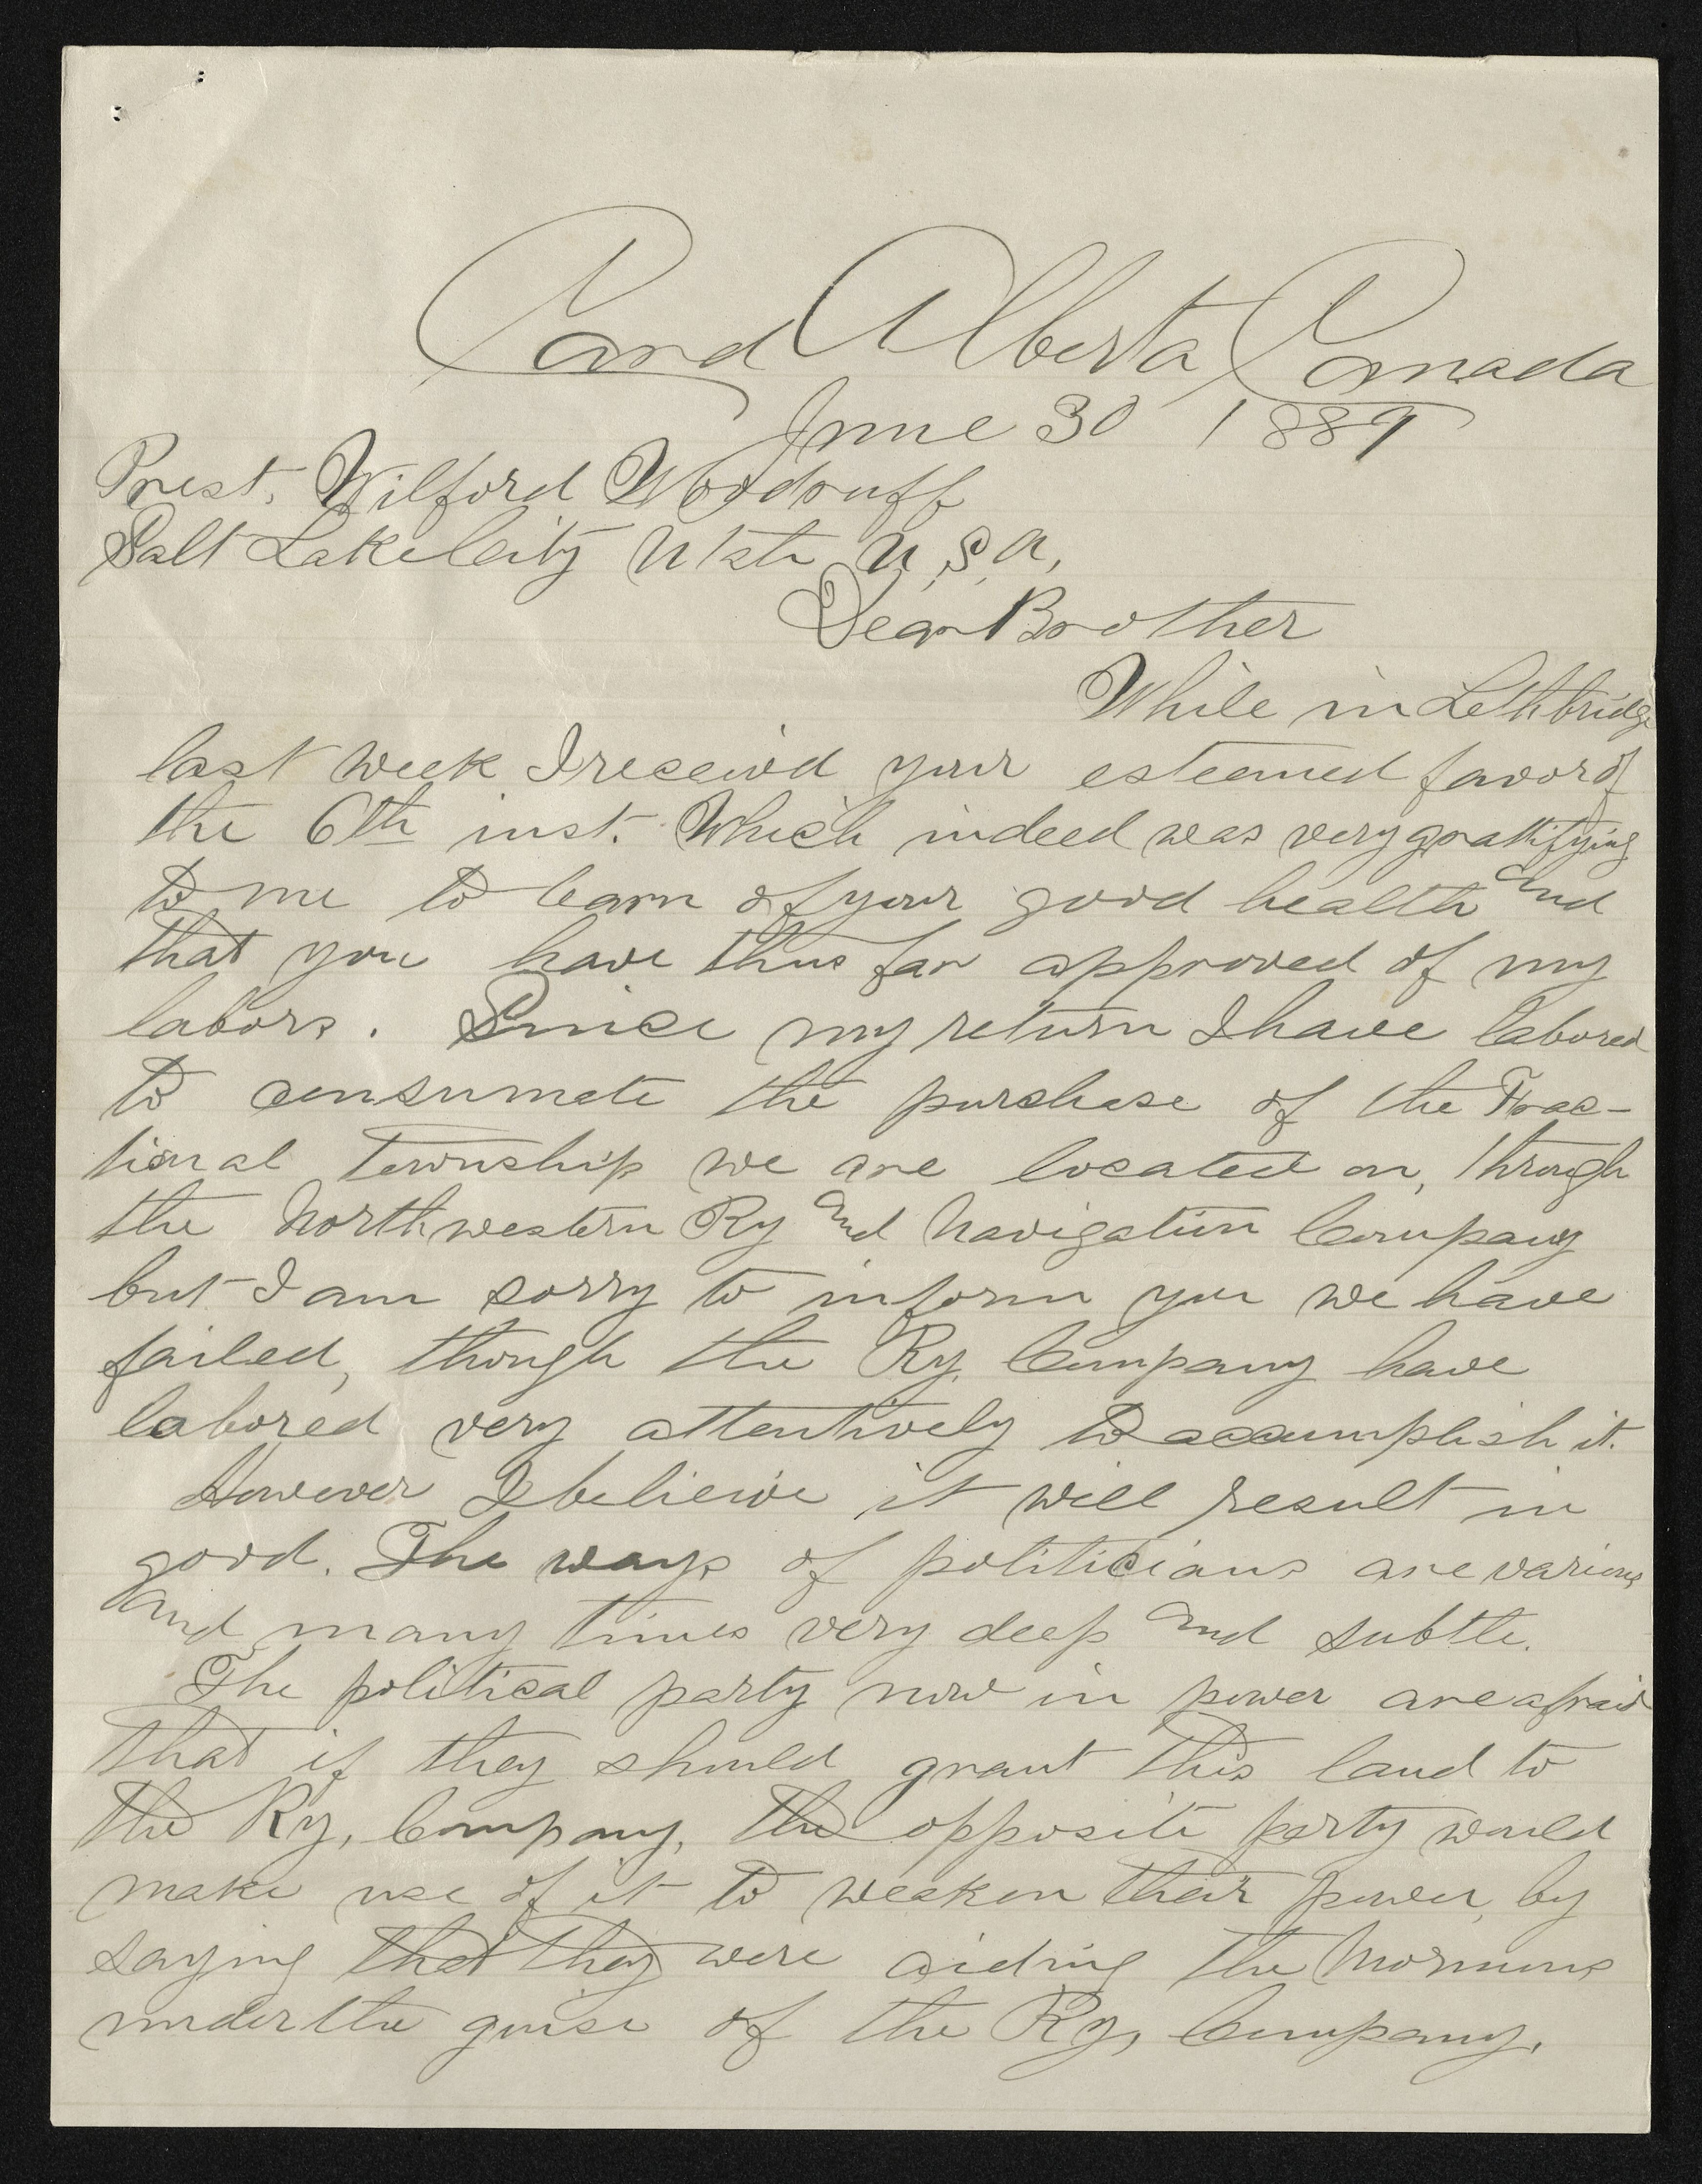 Card Alberta Canada
June 30 1889
Prest. Wilford Woodruff
Salt Lake City Utah U.S.A.
Dear Brother
While in Lethbridge
last week I receivd your esteemed favor of
the 6th inst. Which indeed was very grattifying
to me to learn of your good health and
that you have thus far approved of my
labors. Since my return I have labored
to consumate the purchase of the Frac-
tional Township we are located on, through
the Northwestern Ry and Navigation Company
but I am sorry to inform you we have
failed, though the Ry. Company have
labored very attentively to accomplish it.
However I believe it will result in
good. The ways of politicians are various
and many times very deep and subtle.
The political party now in power are afraid
that if they should grant this land to
the Ry, Company, the opposite party would
make use of it to weaken their power, by
saying that they were aiding the Mormons
under the guise of the Ry, Company.